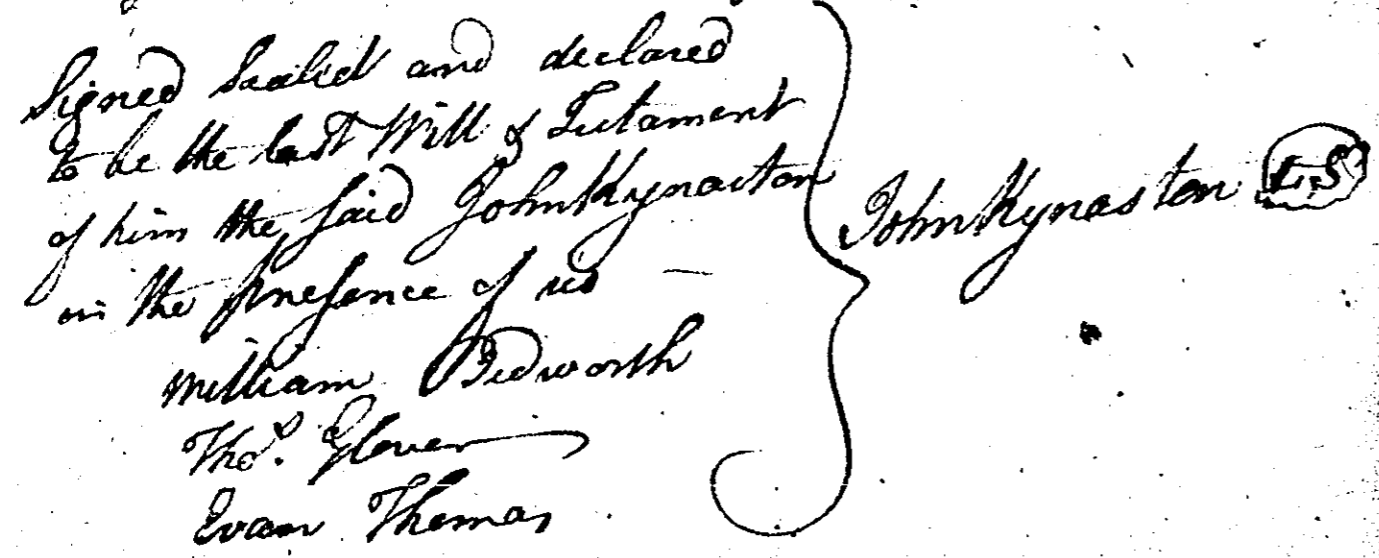 Signed Sealed and declared
to be the last Will & Testament
of him the said John Kynaston
in the presence of us —
William Bedworth
Thos. Glover
Evan Thomas
John Kynaston L.S